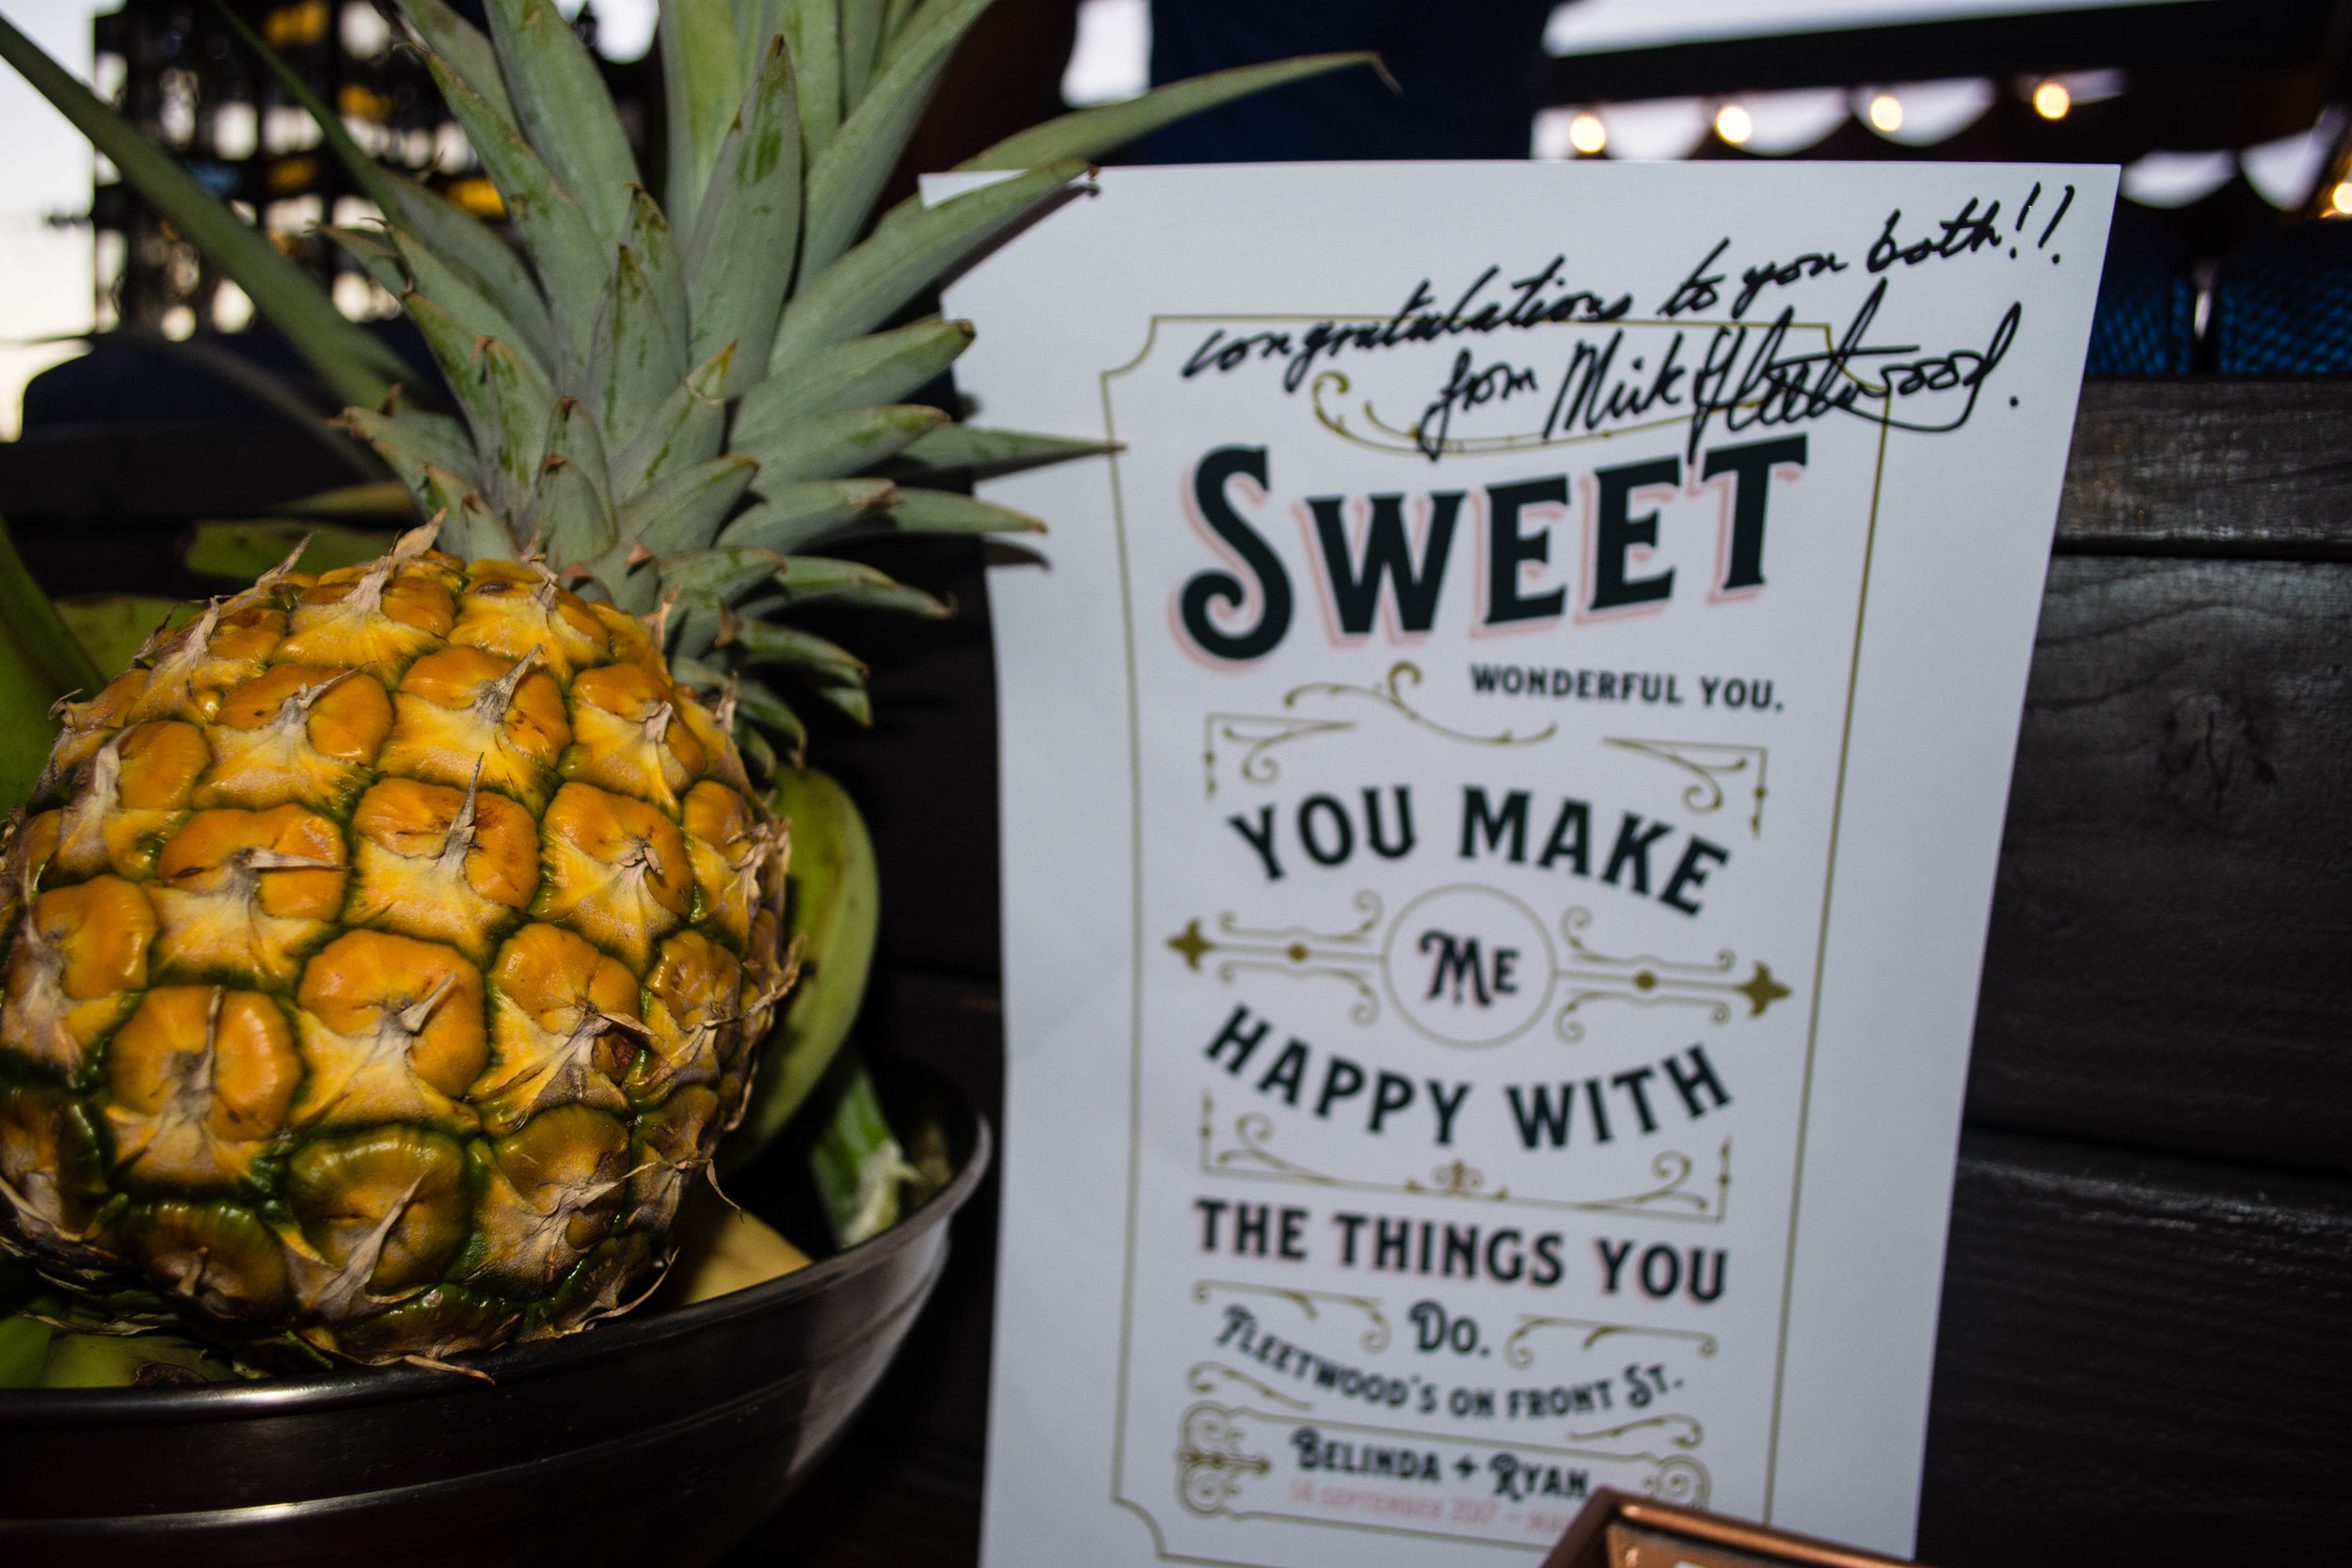 congratulations to you both!!
from Mick Fleetwood.
SWEET
WONDERFUL YOU.
YOU MAKE
ME
HAPPY WITH
THE THINGS YOU
DO.
FLEETWOOD'S ON FRONT ST.
BELINDA + RYAN
14 SEPTEMBER 2017 –